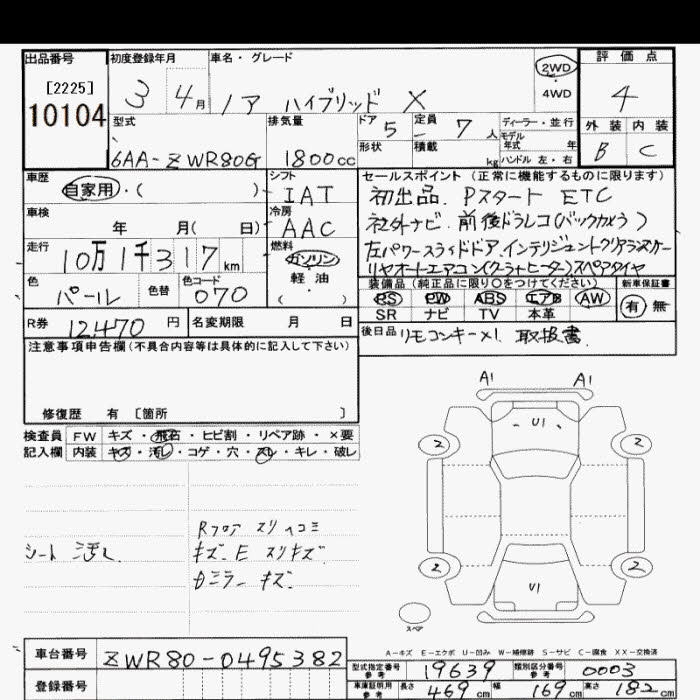 出品番号 初度登録年月 車名・グレード 評価点
[2225]
10104
3 4月 ノア ハイブリッド X
2WD
4WD
4
外装 内装
B C
型式 排気量 ドア 定員 ディーラー・並行
6AA-ZWR80G 1800cc 5 7人
モデル年式 年
形状 積載 kg ハンドル 左・右
車歴 シフト セールスポイント (正常に機能するものに限ります)
自家用・( ) IAT 初出品 Pスタート ETC
車検 冷房 社外ナビ 前後ドラレコ(バックカメラ)
年 月( 日) AAC
走行 燃料 左パワースライドドア、インテリジェントクリアランスソナー
10万1千317km ガソリン リヤオートエアコン(クーラー,ヒーター)スペアタイヤ
軽油
( )
色 色替 色コード 装備品(純正品に限り○をつけてください) 新車保証書
パール 070 PS PW ABS エアB AW 有 無
SR ナビ TV 本革
R券 12,470円 名変期限 月 日 後日品 リモコンキー×1 取扱書
注意事項申告欄(不具合内容等は具体的に記入して下さい)
修復歴 有 [箇所 ]
検査員 FW キズ・飛石・ヒビ割・リペア跡・×要
記入欄 内装 キズ・汚レ・コゲ・穴・スレ・キレ・破レ
A1 A1
U1
2 2
2 2
U1
スペア
Rフロア スリ ヘコミ
シート 汚レ キズ E スリキズ
ミラー キズ
A-キズ E-エクボ U-凹み W-補修跡 S-サビ C-腐食 XX-交換済
車台番号 ZWR80-0495382
型式指定番号 参考 19639 類別区分番号 参考 0003
登録番号
車庫証明用 参考 長さ 469cm 幅 169cm 高さ 182cm